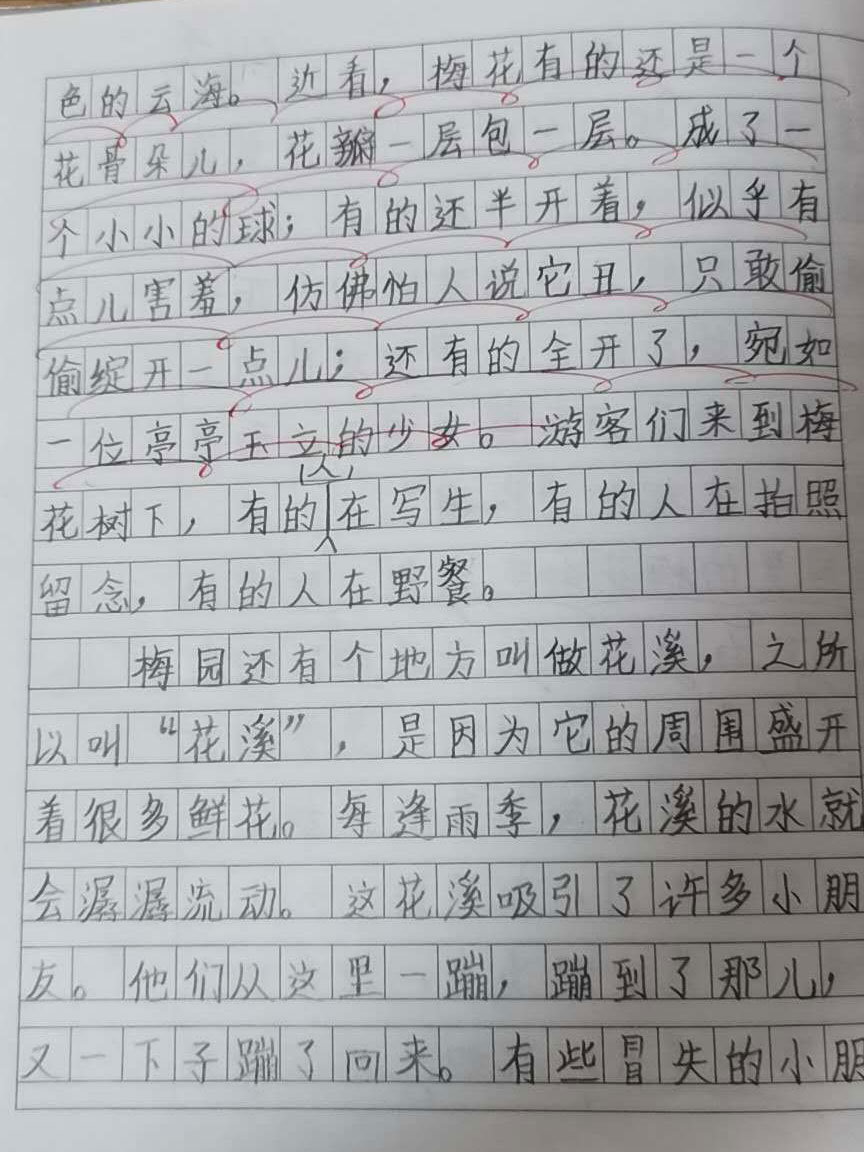 色的云海。近看，梅花有的还是一个
花骨朵儿，花瓣一层包一层。成了一
个小小的球；有的还半开着，似乎有
点儿害羞，仿佛怕人说它丑，只敢偷
偷绽开一点儿；还有的全开了，宛如
一位亭亭玉立的少女。游客们来到梅
花树下，有的(人)在写生，有的人在拍照
留念，有的人在野餐。
梅园还有个地方叫做花溪，之所
以叫“花溪”，是因为它的周围盛开
着很多鲜花。每逢雨季，花溪的水就
会潺潺流动。这花溪吸引了许多小朋
友。他们从这里一蹦，蹦到了那儿，
又一下子蹦了回来。有些冒失的小朋